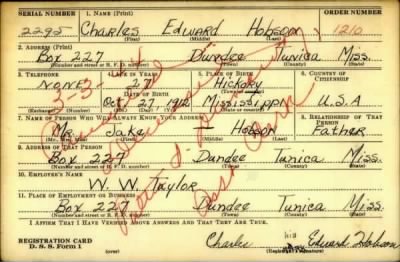 SERIAL NUMBER 1. NAME (Print) ORDER NUMBER
2295 Charles Edward Hobson 1210
(First) (Middle) (Last)
2. ADDRESS (Print)
Box 227 Dundee Tunica Miss.
(Number and street or R. F. D. number) (Town) (County) (State)
3. TELEPHONE 4. AGE IN YEARS 5. PLACE OF BIRTH 6. COUNTRY OF CITIZENSHIP
None 27 Hickory
DATE OF BIRTH (Town or county)
Oct 27 1912 Mississippi U.S.A
(Exchange) (Number) (Mo.) (Day) (Yr.) (State or country)
7. NAME OF PERSON WHO WILL ALWAYS KNOW YOUR ADDRESS 8. RELATIONSHIP OF THAT PERSON
Mr. Jake Hobson Father
(Mr., Mrs., Miss) (First) (Middle) (Last)
9. ADDRESS OF THAT PERSON
Box 227 Dundee Tunica Miss.
(Number and street or R. F. D. number) (Town) (County) (State)
10. EMPLOYER'S NAME
W. W. Taylor
11. PLACE OF EMPLOYMENT OR BUSINESS
Dundee Tunica Miss.
(Number and street or R. F. D. number) (Town) (County) (State)
I AFFIRM THAT I HAVE VERIFIED ABOVE ANSWERS AND THAT THEY ARE TRUE.
REGISTRATION CARD
D. S. S. Form 1 (over)
Charles his Edward Hobson
(Registrant's signature)